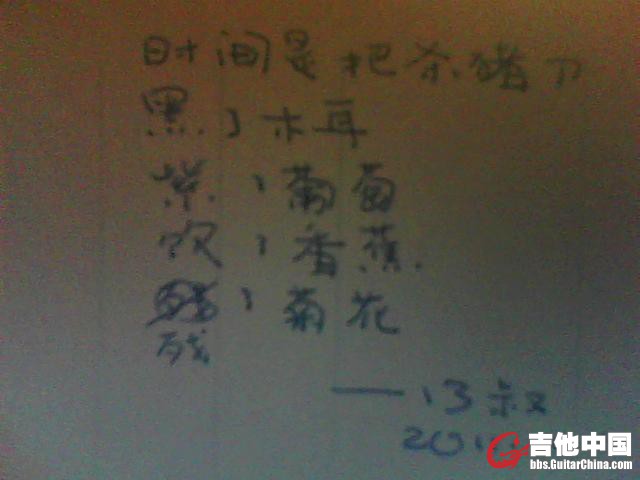 时间是把杀猪刀
黑了木耳
紫了葡萄
软了香蕉
了菊花
残
——叔
吉他中国
bbs.GuitarChina.com